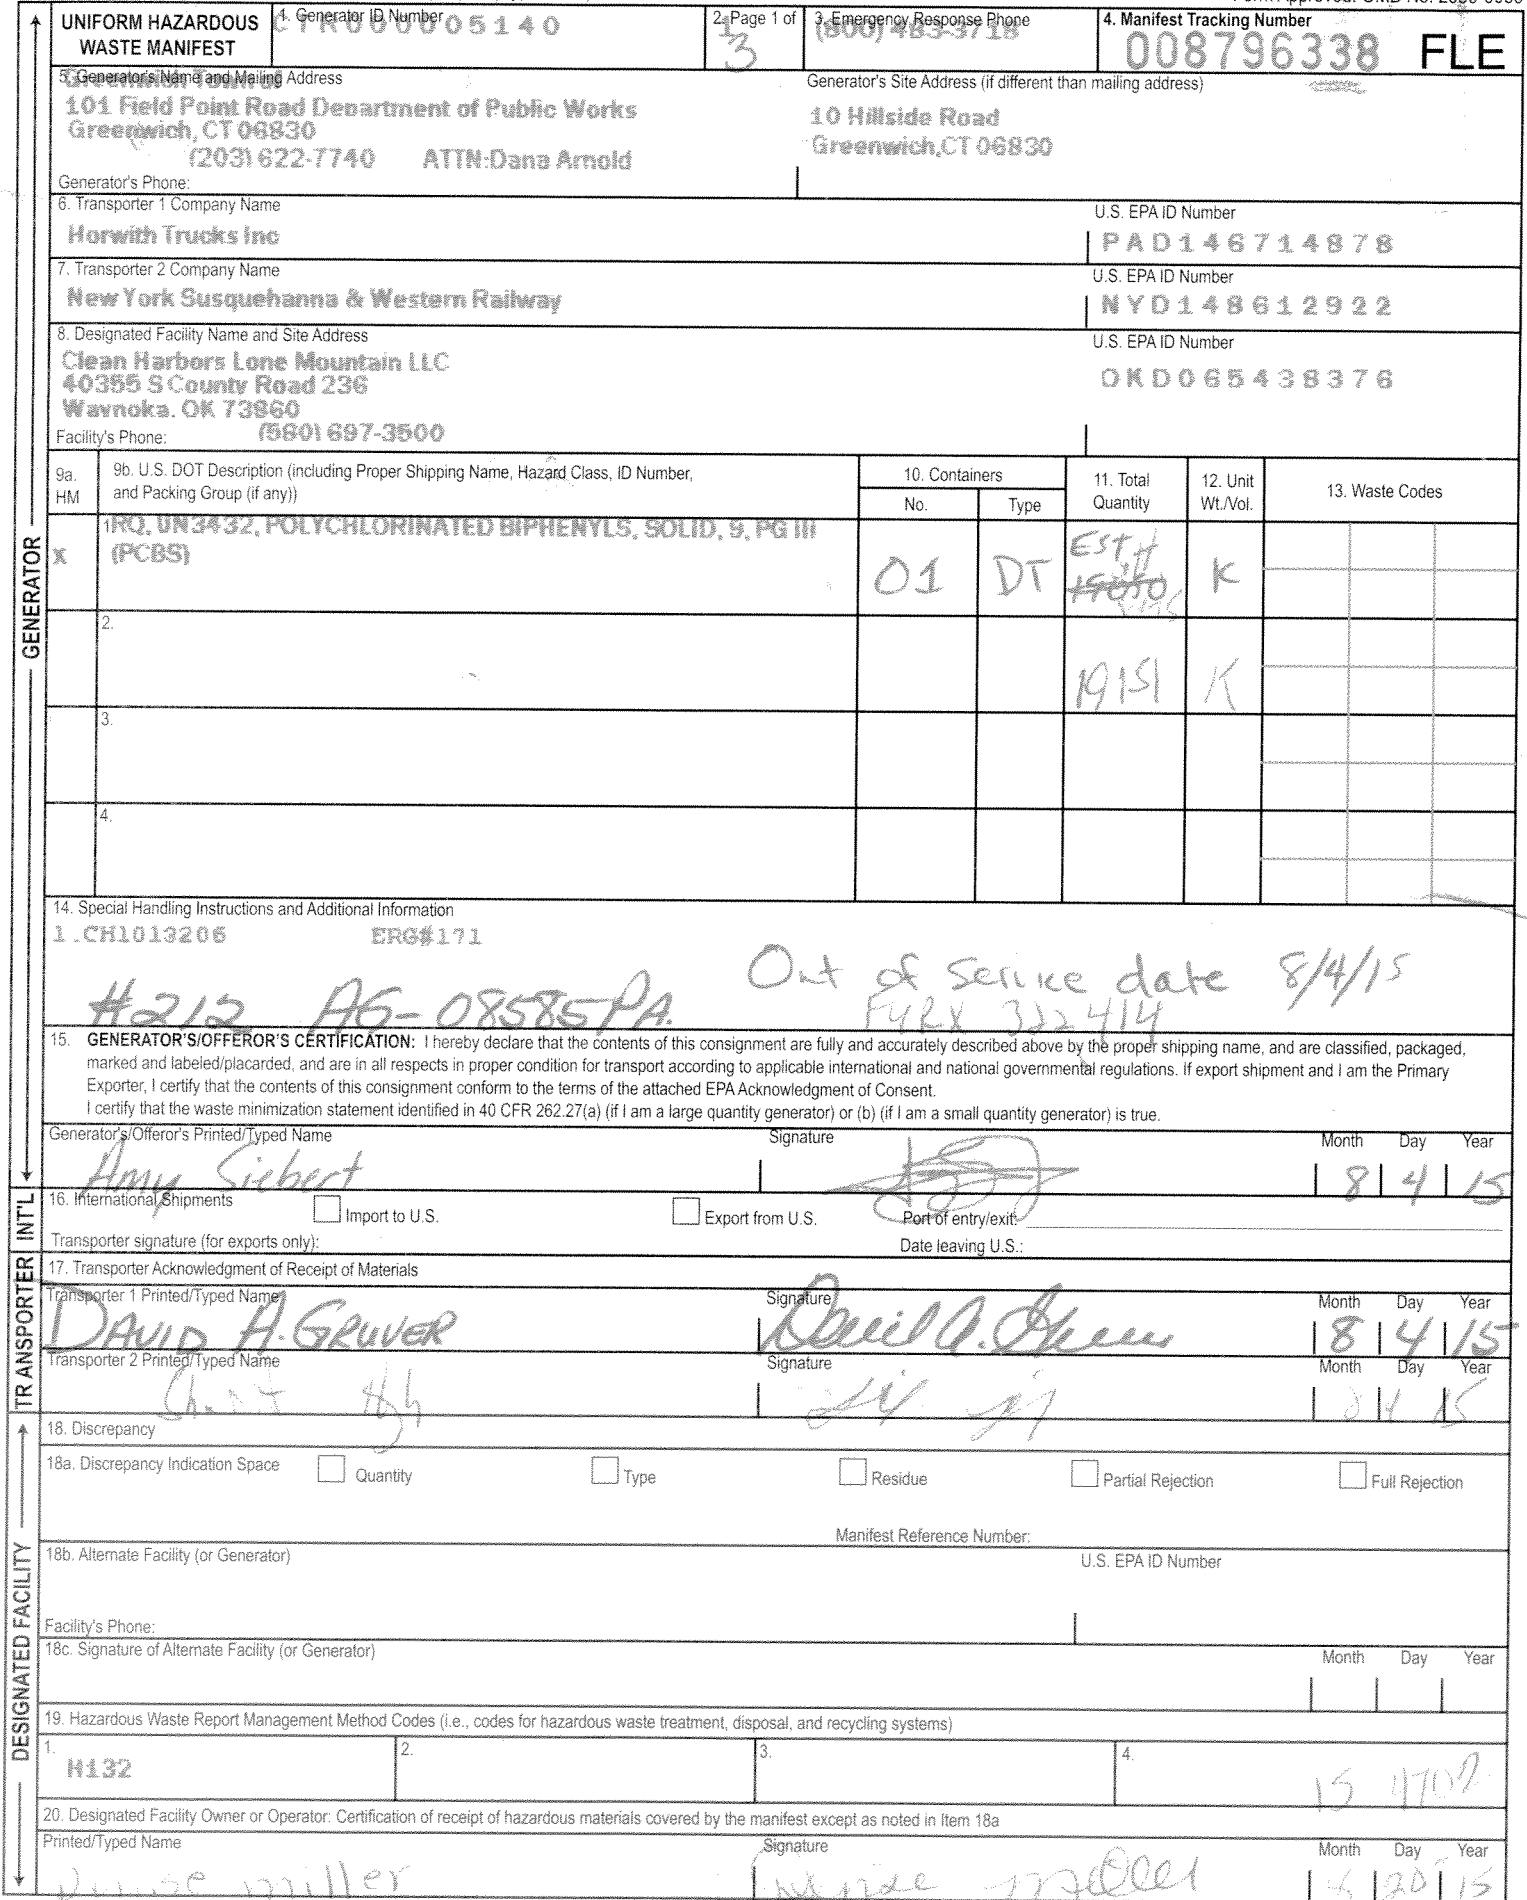 UNIFORM HAZARDOUS WASTE MANIFEST
1. Generator ID Number
CTR000005140
2. Page 1 of
3
3. Emergency Response Phone
(800) 483-3718
4. Manifest Tracking Number
008796338 FLE
5. Generator's Name and Mailing Address
Greenwich Town of
101 Field Point Road Department of Public Works
Greenwich, CT 06830
(203) 622-7740 ATTN:Dana Arnold
Generator's Phone:
Generator's Site Address (if different than mailing address)
10 Hillside Road
Greenwich,CT 06830
6. Transporter 1 Company Name
Horwith Trucks Inc
U.S. EPA ID Number
PAD146714878
7. Transporter 2 Company Name
New York Susquehanna & Western Railway
U.S. EPA ID Number
NYD148612922
8. Designated Facility Name and Site Address
Clean Harbors Lone Mountain LLC
40355 S County Road 236
Waynoka. OK 73860
Facility's Phone: (580) 697-3500
U.S. EPA ID Number
OKD065438376
9a. HM
9b. U.S. DOT Description (including Proper Shipping Name, Hazard Class, ID Number, and Packing Group (if any))
10. Containers
No.
Type
11. Total Quantity
12. Unit Wt./Vol.
13. Waste Codes
X
1. RQ, UN3432, POLYCHLORINATED BIPHENYLS, SOLID, 9, PG III
(PCBS)
01 DT EST K
2.
19151 K
3.
4.
14. Special Handling Instructions and Additional Information
1.CH1013206 ERG#171
Out of Service date 8/4/15
#212 AG-08585PA.
322414
15. GENERATOR'S/OFFEROR'S CERTIFICATION: I hereby declare that the contents of this consignment are fully and accurately described above by the proper shipping name, and are classified, packaged,
marked and labeled/placarded, and are in all respects in proper condition for transport according to applicable international and national governmental regulations. If export shipment and I am the Primary
Exporter, I certify that the contents of this consignment conform to the terms of the attached EPA Acknowledgment of Consent.
I certify that the waste minimization statement identified in 40 CFR 262.27(a) (if I am a large quantity generator) or (b) (if I am a small quantity generator) is true.
Generator's/Offeror's Printed/Typed Name
Signature
Month Day Year
Amy Siebert
8 4 15
16. International Shipments
Import to U.S.
Export from U.S.
Port of entry/exit:
Transporter signature (for exports only):
Date leaving U.S.:
17. Transporter Acknowledgment of Receipt of Materials
Transporter 1 Printed/Typed Name
Signature
Month Day Year
DAVID A. GRUVER
David A. Gruver
8 4 15
Transporter 2 Printed/Typed Name
Signature
Month Day Year
18. Discrepancy
18a. Discrepancy Indication Space
Quantity
Type
Residue
Partial Rejection
Full Rejection
Manifest Reference Number:
18b. Alternate Facility (or Generator)
U.S. EPA ID Number
Facility's Phone:
18c. Signature of Alternate Facility (or Generator)
Month Day Year
19. Hazardous Waste Report Management Method Codes (i.e., codes for hazardous waste treatment, disposal, and recycling systems)
1. H132
2.
3.
4.
20. Designated Facility Owner or Operator: Certification of receipt of hazardous materials covered by the manifest except as noted in Item 18a
Printed/Typed Name
Signature
Month Day Year
miller
20 15
GENERATOR
INT'L
TRANSPORTER
DESIGNATED FACILITY